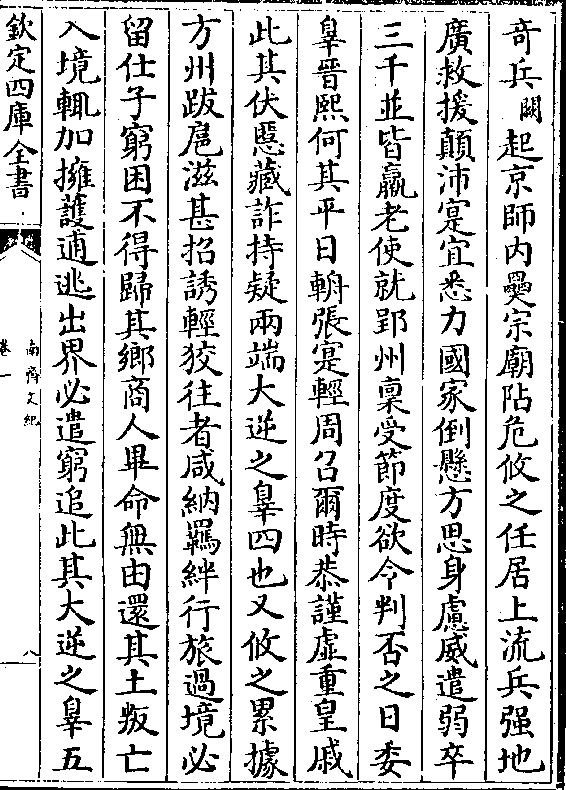 奇兵闕起京師内釁宗廟阽危攸之任居上流兵强地
廣救援顛沛寔宜悉力國家倒懸方思身慮威遣弱卒
三千並皆羸老使就郢州禀受節度欲令判否之日委
辠晉熙何其平日輈張寔輕周召爾時恭謹虚重皇戚
此其伏慝藏詐持疑兩端大逆之辠四也又攸之累據
方州跋扈滋甚招誘輕狡往者咸納羈絆行旅過境必
留仕子窮困不得歸其鄉商人畢命無由還其土叛亡
入境輒加擁護逋逃出界必遣窮追此其大逆之辠五
欽定四庫全書
南齊文紀
卷一
八